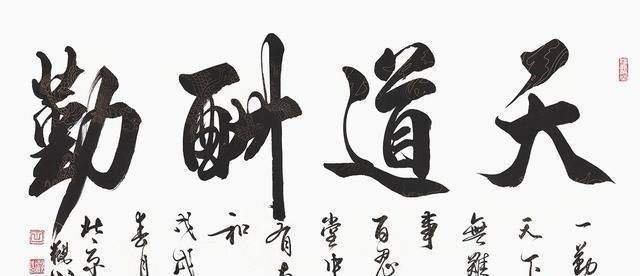 天道酬勤
一勤
天下
無難
事
百忍
堂中
有太
和
戊戌
春月
北京